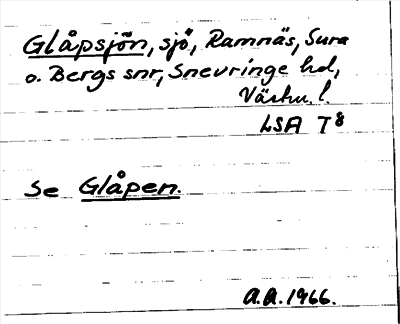 Glåpsjön, sjö, Ramnäs, Sura
o. Bergs snr, Snevringe hd,
Västm. l.
LSA T8
Se Glåpen.
A.A. 1966.